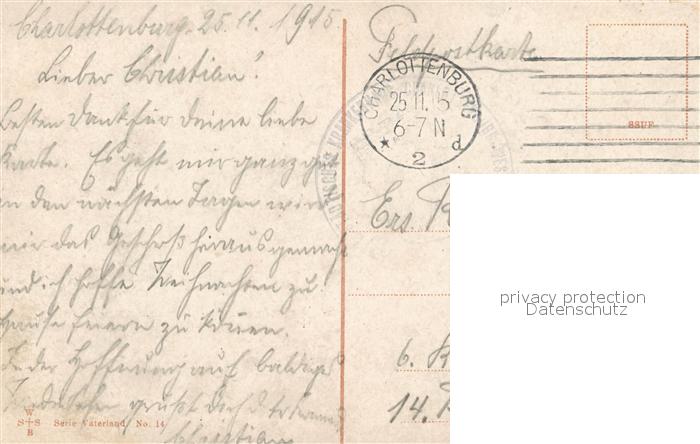 Charlottenburg. 25.11.1915
Lieber Christian!
Besten Dank für deine liebe
Karte. Es geht mir ganz gut
in den nächsten Tagen wird
mir das Geschoß heraus gemacht
und ich hoffe Weihnachten zu
Hause feiern zu können.
In der Hoffnung auf baldiges
Wiedersehen grüßt Dich
Christian
W
S+S
B
Serie Vaterland, No. 14
Feldpostkarte
CHARLOTTENBURG
25.11.15
6-7 N
* 2 d
SSUF
Ers.
6.
14.
privacy protection
Datenschutz